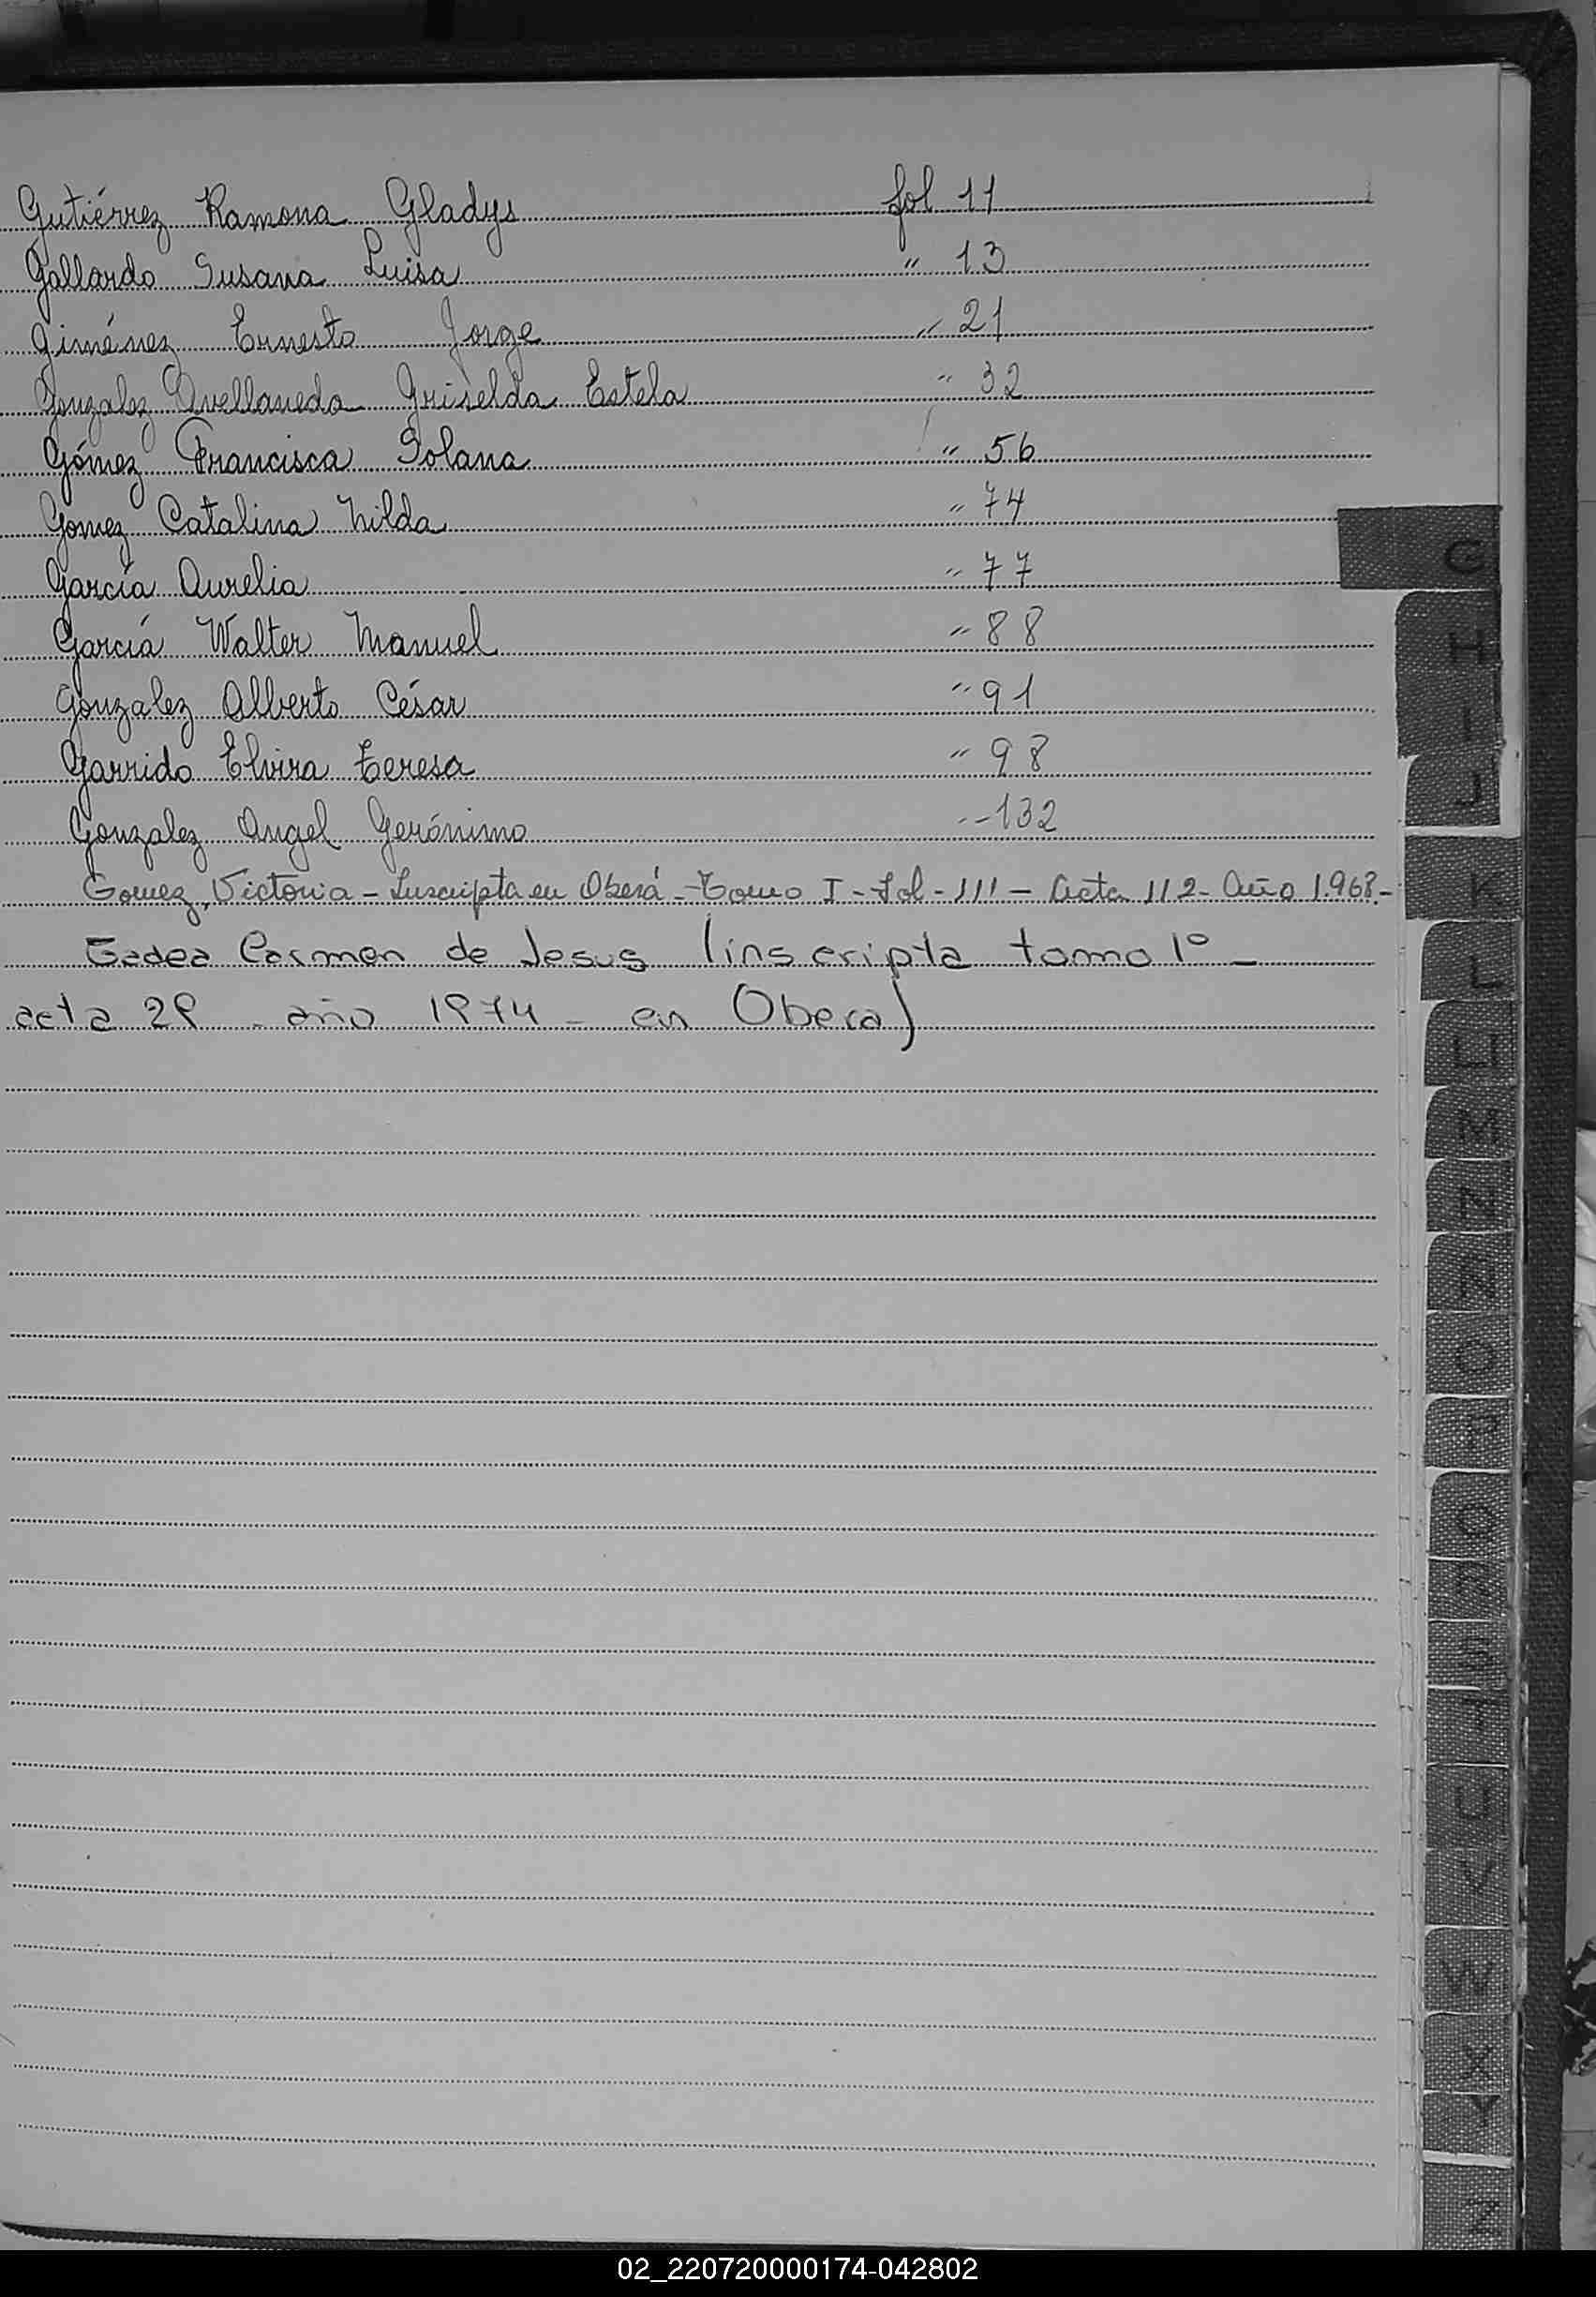 Gutiérrez Ramona Gladys fol 11
Gallardo Susana Luisa " 13
Giménez Ernesto Jorge " 21
Gonzalez Avellaneda Griselda Estela " 32
Gómez Francisca Solana " 56
Gomez Catalina Nilda " 74
García Aurelia " 77
García Walter Manuel " 88
Gonzalez Alberto César " 91
Garrido Elvira Teresa " 98
Gonzalez Angel Gerónimo " 132
Gomez, Victoria - Inscripta en Oberá - Tomo I - Fol - 111 - Acta 112 - Año 1.968.-
Gadea Carmen de Jesus (inscripta tomo 1º -
acta 29 - año 1974 - en Obera)
G
H
I
J
K
L
LL
M
N
Ñ
O
P
Q
R
S
T
U
V
W
X
Y
Z
02_220720000174-042802